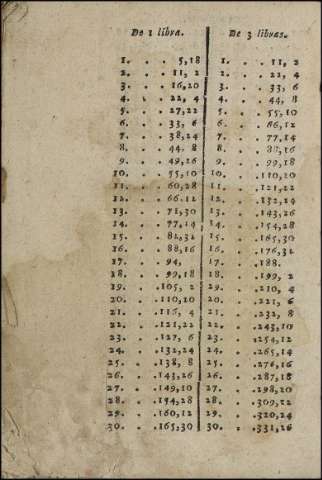 De 1 libra. De 3 libras.
1. . . 5,18 1. . . 11, 2
2. . . 11, 2 2. . . 22, 4
3. . . 16,20 3. . . 33, 6
4. . . 22, 4 4. . . 44, 8
5. . . 27,22 5. . . 55,10
6. . . 33, 6 6. . . 66,12
7. . . 38,24 7. . . 77,14
8. . . 44, 8 8. . . 88,16
9. . . 49,26 9. . . 99,18
10. . . 55,10 10. . . 110,20
11. . . 60,28 11. . . 121,22
12. . . 66,12 12. . . 132,24
13. . . 71,30 13. . . 143,26
14. . . 77,14 14. . . 154,28
15. . . 82,32 15. . . 165,30
16. . . 88,16 16. . . 176,32
17. . . 94, 17. . . 188.
18. . . 99,18 18. . . 199, 2
19. . . 105, 2 19. . . 210, 4
20. . . 110,10 20. . . 221, 6
21. . . 116, 4 21. . . 232, 8
22. . . 121,22 22. . . 243,10
23. . . 127, 6 23. . . 254,12
24. . . 132,24 24. . . 265,14
25. . . 138, 8 25. . . 276,16
26. . . 143,26 26. . . 287,18
27. . . 149,10 27. . . 298,20
28. . . 154,28 28. . . 309,22
29. . . 160,12 29. . . 320,24
30. . . 165,30 30. . . 331,26